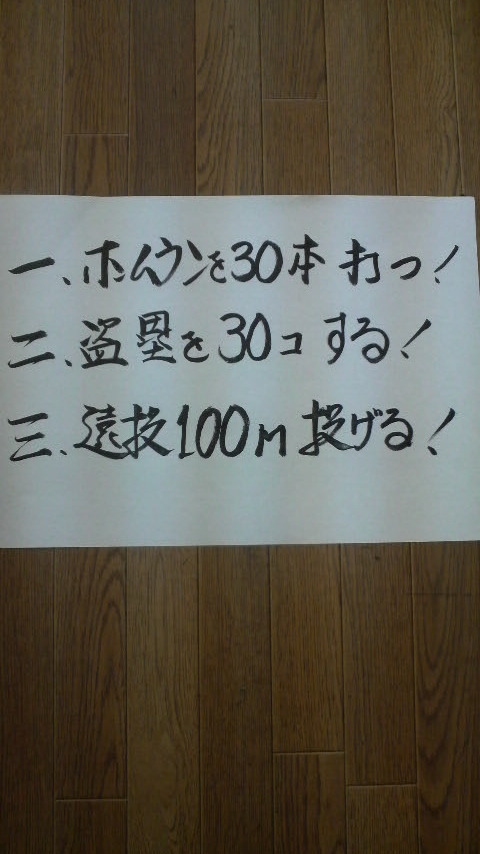 一、ホムランを30本打つ!
二、盗塁を30コする!
三、遠投100m投げる!